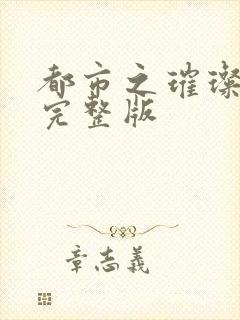 都市之璀璨
完整版
章志義